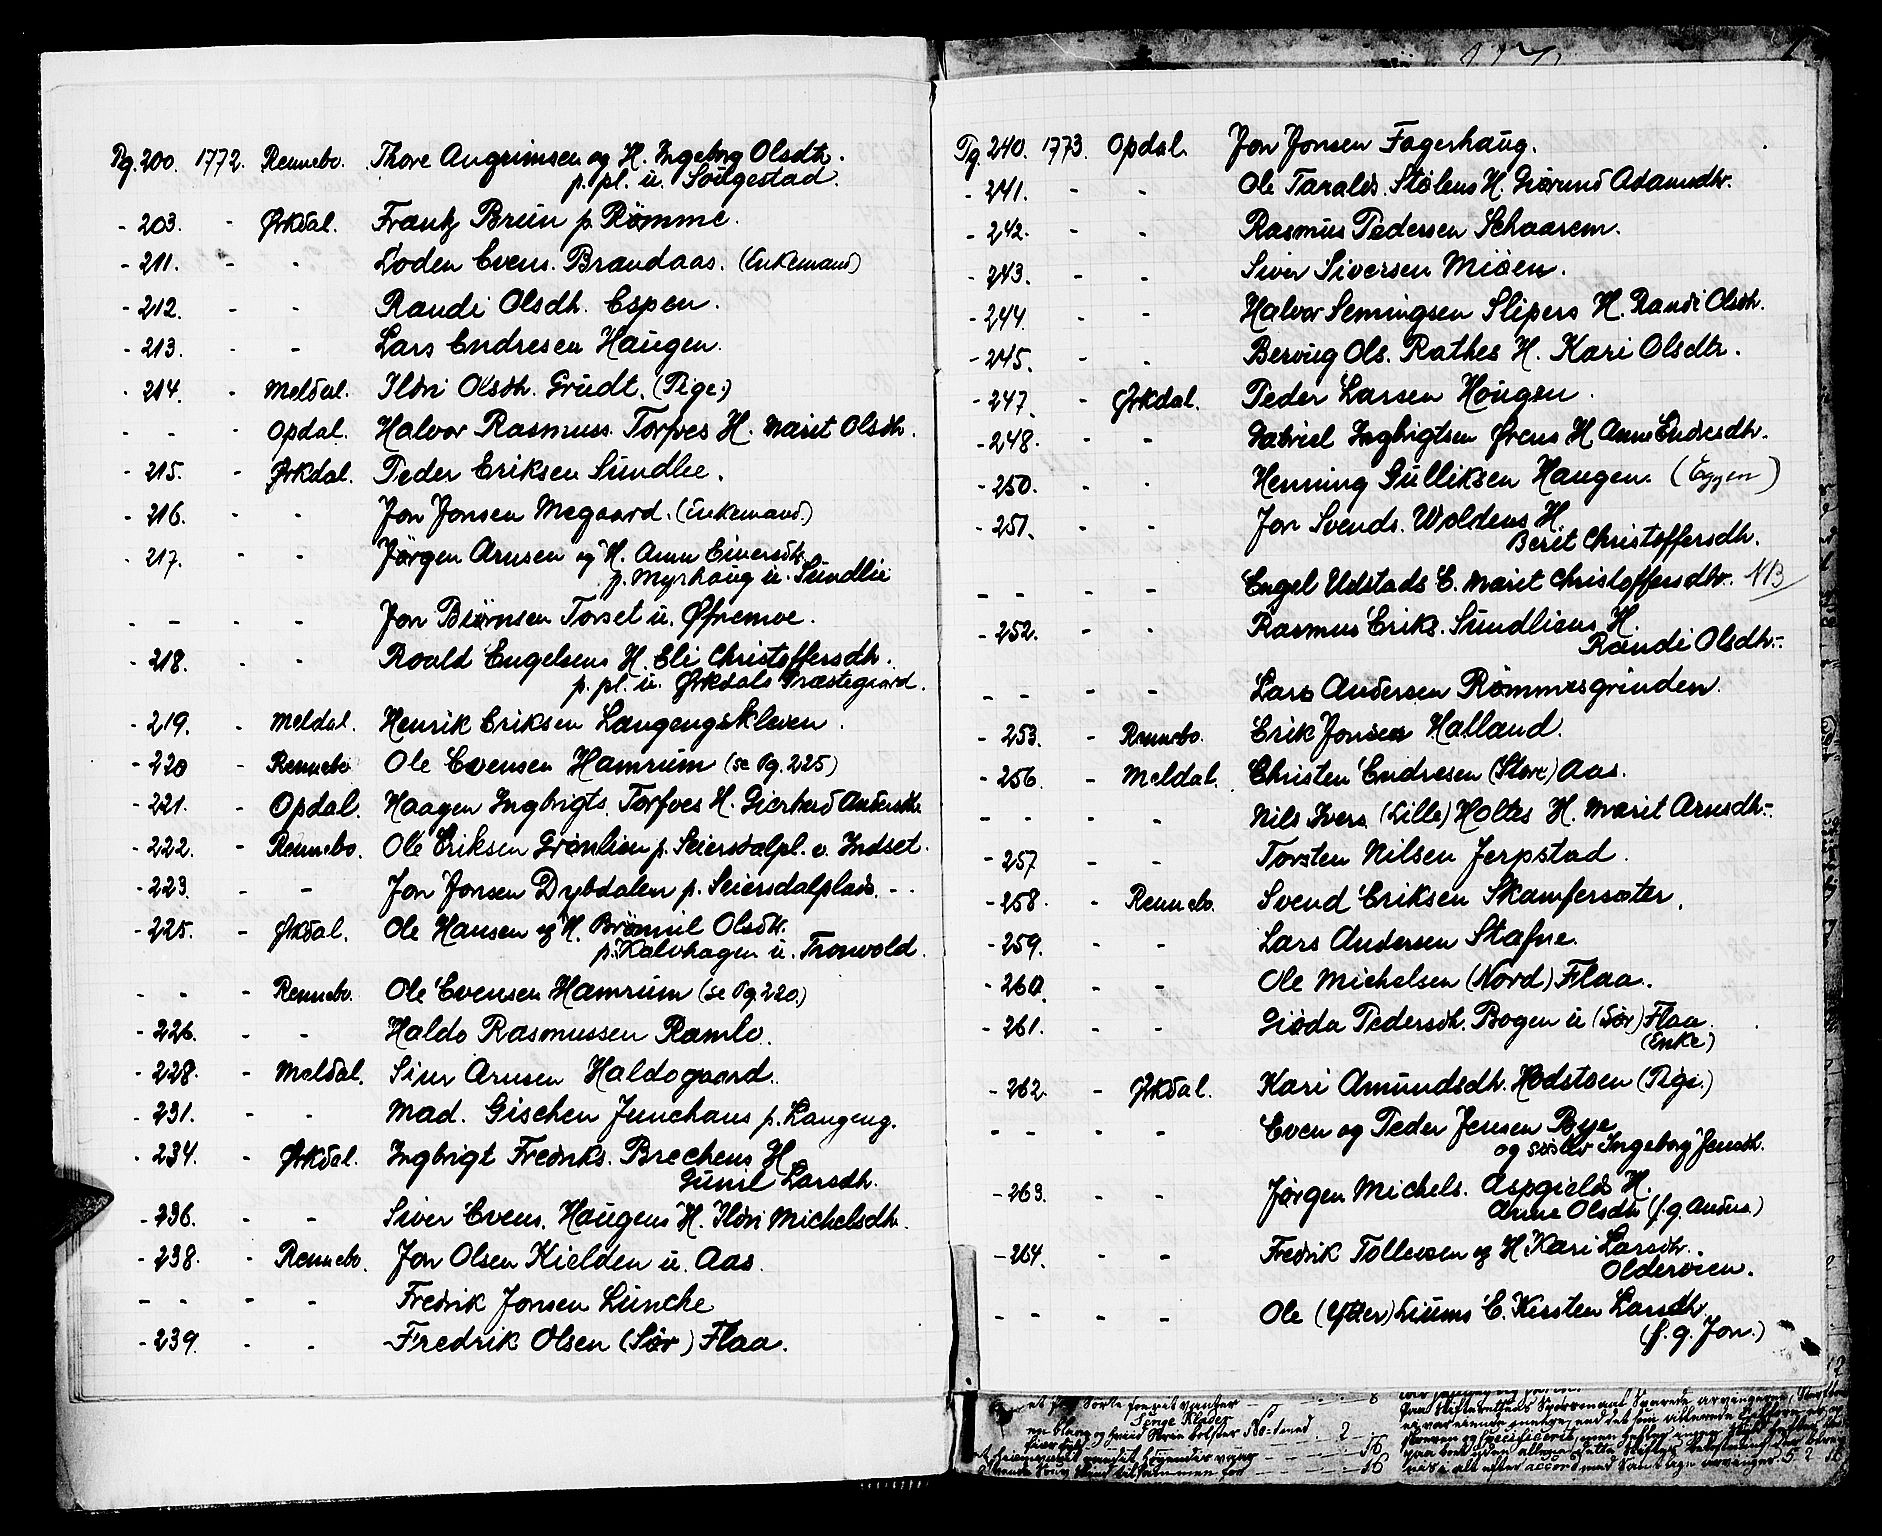 Pg. 200. 1772. Rennebo. Thore Angrimsen og H. Ingeborg Olsdtr.
p. pl. u. Sougestad.
- 203. - Ørkdal. Frantz Brun p. Rømme.
- 211. - - Loden Evens. Brandaas. (Enkemand)
- 212. - - Randi Olsdh. Espen.
- 213. - - Lars Endresen Haugen.
- 214. - Meldal. Ildri Olsdh. Grudt. (Pige.)
- - - Opdal. Halvor Rasmuss. Torfves H. Marit Olsdh.
- 215. - Ørkdal. Peder Eriksen Sundlie.
- 216. - - Jon Jonsen Megaard. (Enkemand.)
- 217. - - Jørgen Arnsen og H. Anne Einersdtr.
p. Myrhaug u. Sundlie
- - - - Jon Biørnsen Torset u. Øfremoe.
- 218. - - Roald Engelsens H. Eli Christoffersdh.
p. pl. u. Ørkdals Præstegaard.
- 219. - Meldal. Henrik Eriksen Langengskleven.
- 220 - Rennebo Ole Evensen Hamrum (se Pg. 225)
- 221. - Opdal. Haagen Ingbrigts. Torfves H. Gierherd Andersdtr.
- 222. - Rennebo. Ole Eriksen Grønlien p. Seiersdalpl. v. Indset.
- 223. - - Jon Jonsen Dybdalen p. Seiersdalplads. - -
- 225. - Ørkdal. Ole Hansen og H. Brønnil Olsdtr.
p. Kalvhagen u. Tronvold.
- - - Rennebo. Ole Evensen Hamrum (se Pg. 220.)
- 226. - - Haldo Rasmussen Ramlo.
- 228. - Meldal. Siver Arnsen Haldogaard.
- 231. - - Mad. Gischen Junchaus p. Langeng.
- 234. - Ørkdal. Ingbrigt Fredriks. Brechens H.
Gunil Larsdh.
- 236. - - Siver Evens. Haugens H. Ildri Michelsdh.
- 238. - Rennebo. Jon Olsen Kielden u. Aas.
- - - - Fredrik Jonsen Lunche
- 239. - - Fredrik Olsen (Sør) Flaa.
Pg. 240. 1773. Opdal. Jon Jonsen Fagerhaug.
- 241. - - Ole Taralds. Stølens H. Giørund Adamsdtr.
- 242. - - Rasmus Pedersen Schaarem.
- 243. - - Siver Siversen Miøen.
- 244. - - Halvor Semingsen Slipers H. Randi Olsdh.
- 245. - - Beroug Ols. Rathes H. Kari Olsdtr.
- 247. - Ørkdal. Peder Larsen Hougen.
- 248. - - Gabriel Ingbrigtsen Ørens H. Anne Endresdh.
- 250. - - Henning Gulliksen Haugen. (Eggen)
- 251. - - Jon Svends. Woldens H.
Berit Christoffersdh.
- - - - Engel Udstads E. Marit Christoffersdtr. NB
- 252. - - Rasmus Eriks. Sundliens H.
Randi Olsdh. -
- - - - Lars Andersen Rømmesgrinden.
- 253. - Rennebo. Erik Jonsen Halland.
- 256. - Meldal. Christen Endresen (Store) Aas.
- - - - Nils Ivers. (Lille) Holtes H. Marit Arnsdh. -
- 257 - - Torsten Nilsen Jerpstad.
- 258. - Rennebo. Svend Eriksen Skamfersæter.
- 259. - - Lars Andersen Stafne.
- 260. - - Ole Michelsen (Nord) Flaa.
- 261. - - Giøda Pedersdh. Bogen u (Sør) Flaa.
(Enke)
- 262. - Ørkdal. Kari Amundsdh. Hodstøen (Pige.)
- - - - Even og Peder Jensen Bye
og søster Ingeborg Jensdh.
- 263. - - Jørgen Michels. Aspgields H.
Anne Olsdtr (f. g. Anders.)
- 264. - - Fredrik Tollevsen og H. Kari Larsdtr.
Oldervien.
- - - - Ole (Ytter) Liums E. Kirsten Larsdh.
(f. g. Jon.)